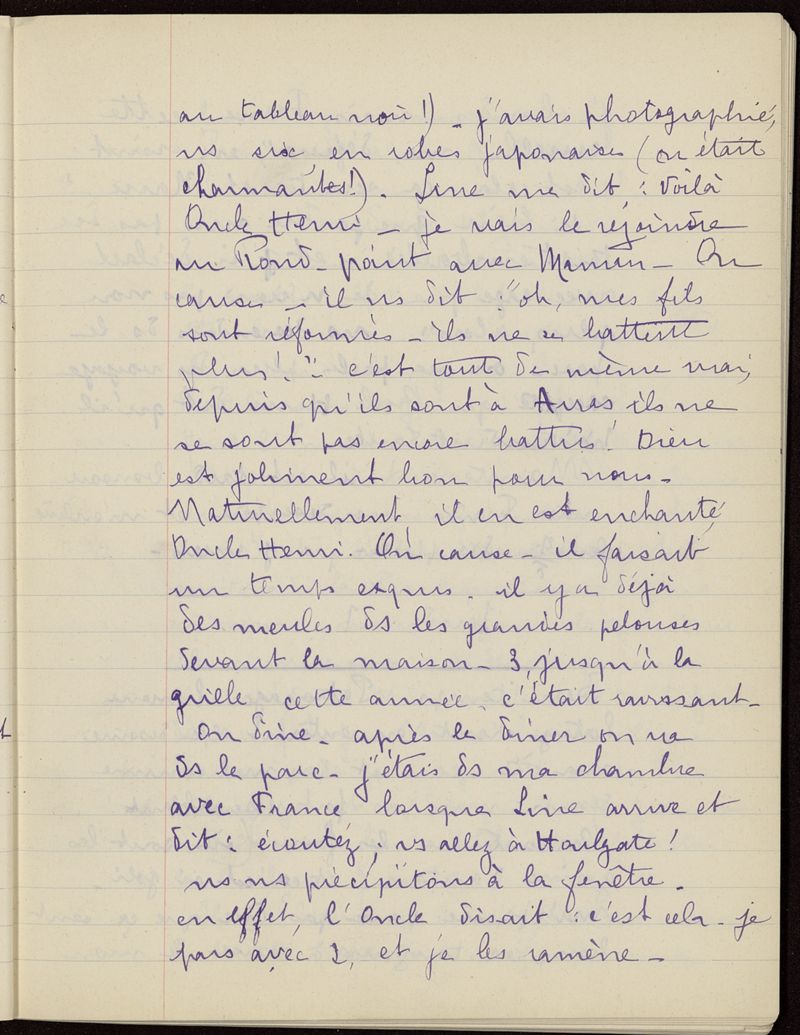 au tableau noir!) _ j'avais photographié,
ns six, en robes japonaises (on était
charmantes!). Line me dit : Voilà
Oncle Henri _ je vais le rejoindre
au Rond-point avec Maman _ On
cause _ il ns dit : "oh, mes fils
sont réformés _ ils ne se battent
plus!" _ c'est tout de même vrai,
depuis qu'ils sont à Arras ils ne
se sont pas encore battus! Dieu
est joliment bon pour nous _
Naturellement, il en est enchanté,
Oncle Henri. On cause _ il faisait
un temps exquis. il y a déjà
des meules ds les grandes pelouses
devant la maison _ 3, jusqu'à la
grille cette année. c'était ravissant _
On dîne _ après le dîner on va
ds le parc _ j'étais ds ma chambre
avec France, lorsque Line arrive et
dit : écoutez, vs allez à Houlgate!
ns ns précipitons à la fenêtre _
en effet, l'Oncle disait : c'est cela _ je
pars avec 2, et je les ramène _